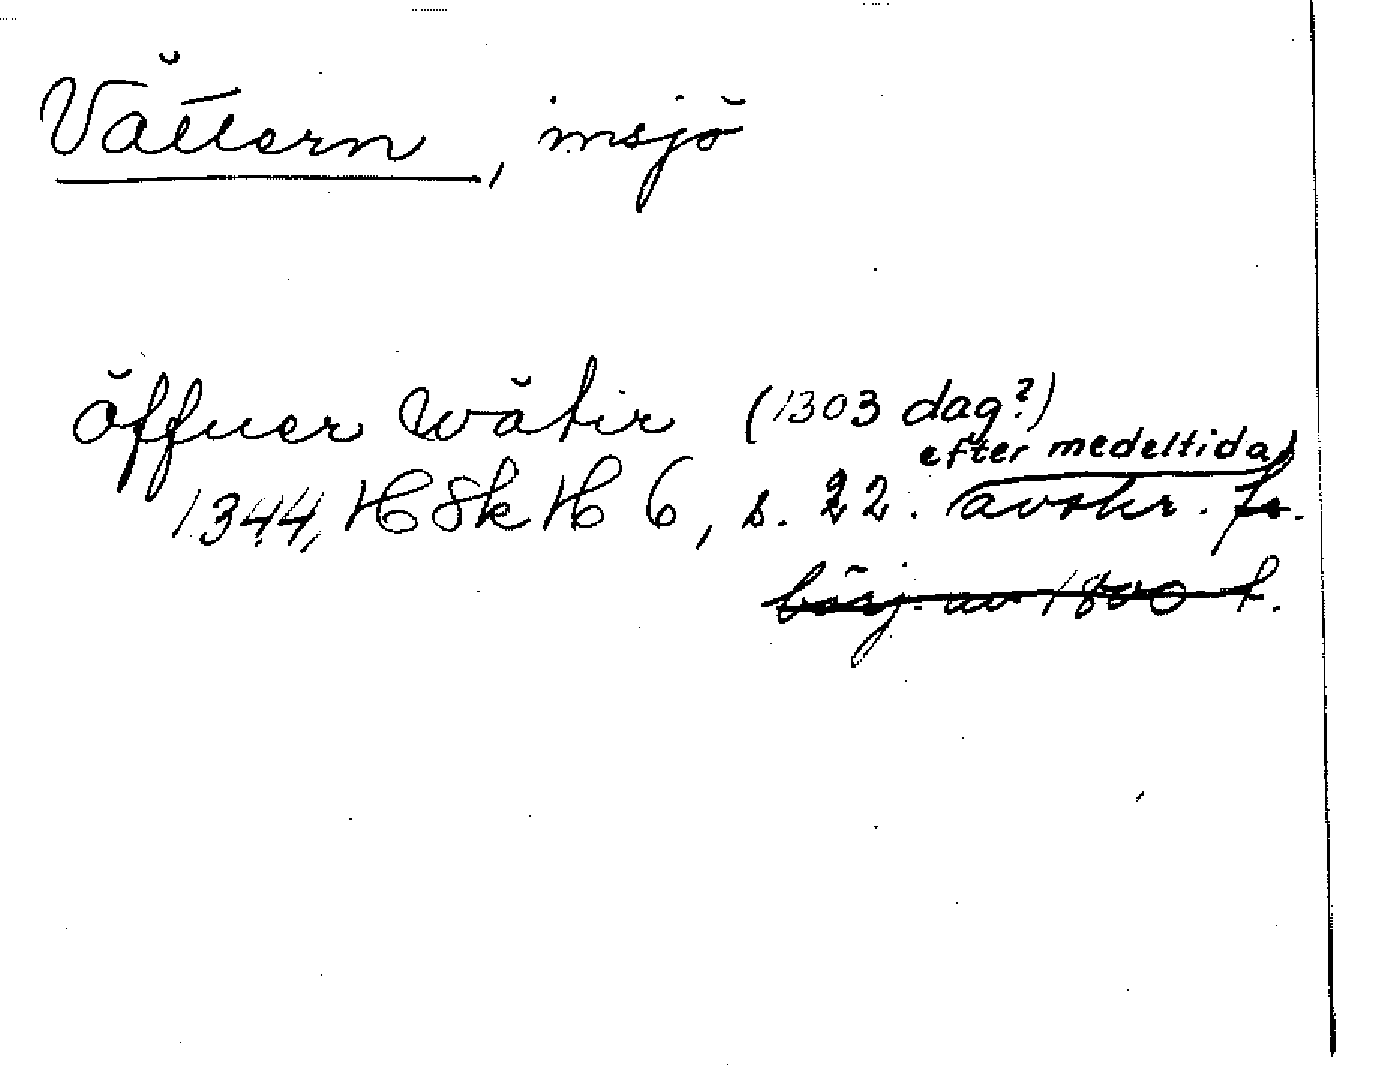 Vättern, insjö
öffuer Wätir (1303 dag?)
efter medeltida
1344, HSkH 6, s. 22. avskr. fr.
börj. av 1800 t.